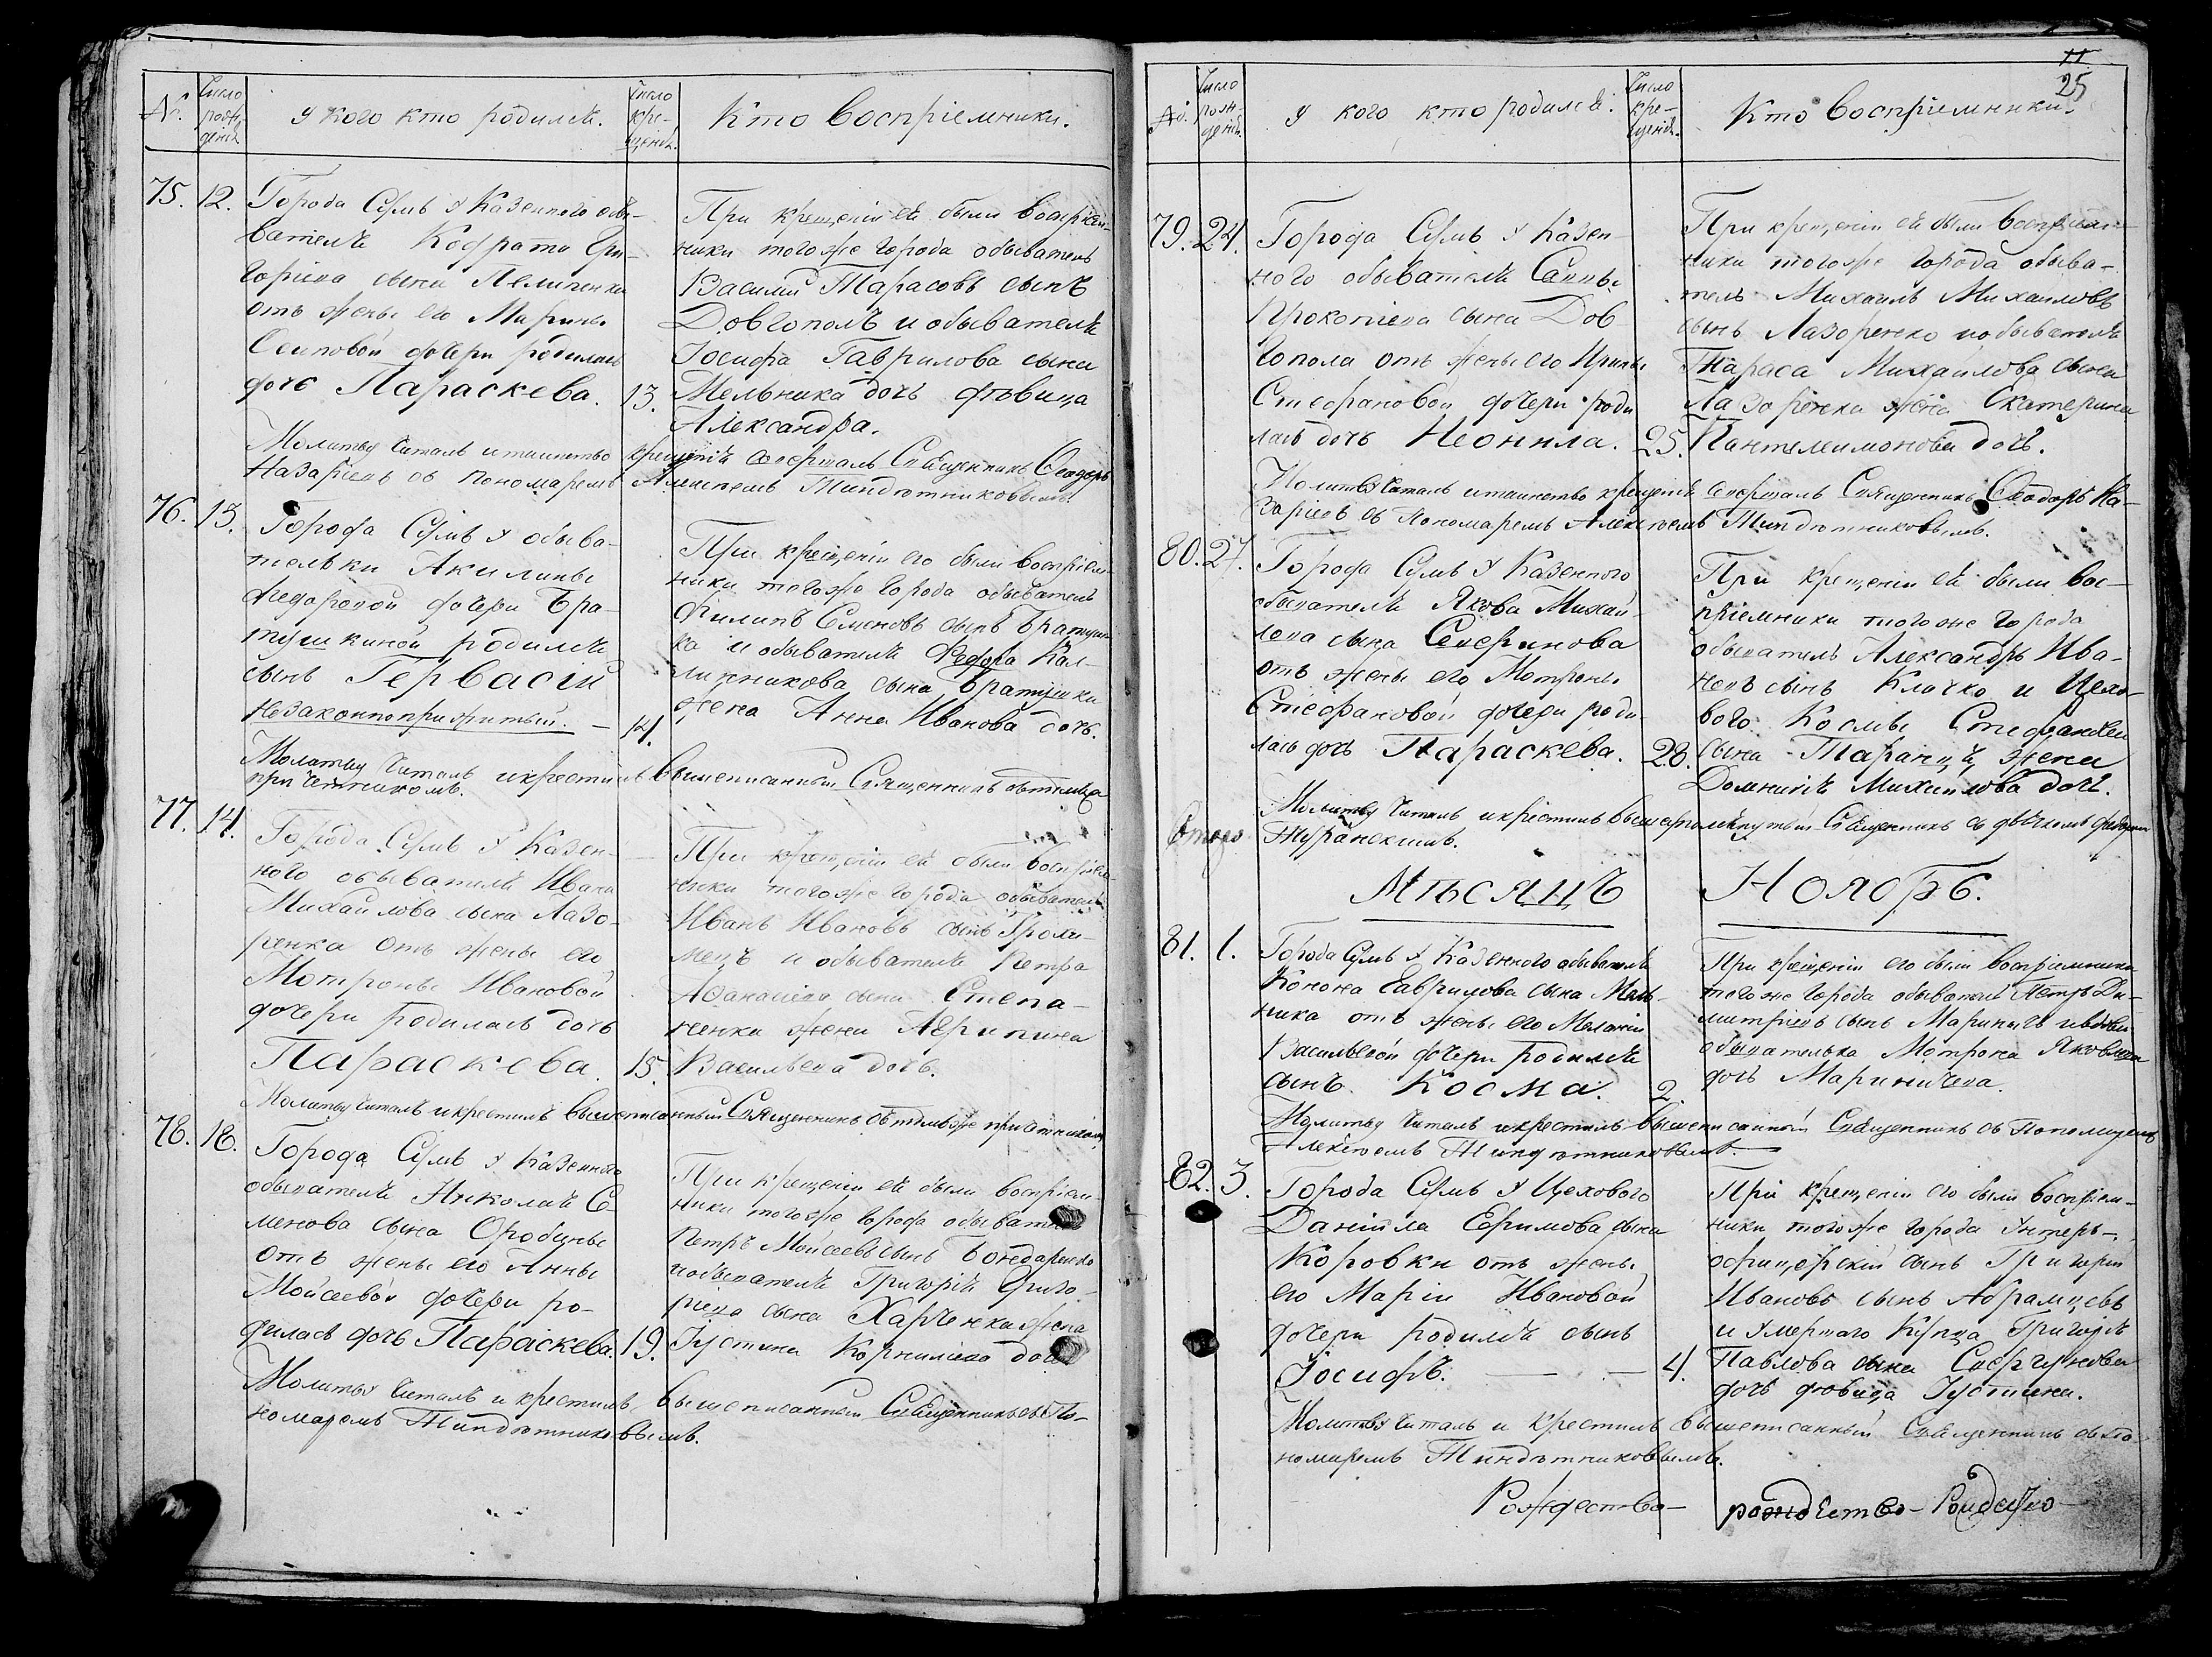 №.
Число рожденія
У кого кто родился.
Число крещенія.
Кто воспріемники.
75. 12.
Города Сумъ у казеннаго обы-
вателя Кодрата Гри-
горіева сына
отъ жены его Марины
Осиповой дочери родилась
дочь Параскева. 13.
При крещеніи ея были воспріем-
ники тогоже города обыватель
Василий Тарасовъ сынъ
Довгополъ и обывателя
Іосифа Гаврилова сына
Мельника дочь дѣвица
Александра.
Молитву читалъ и таинство крещенія совершалъ Священникъ Ѳеодоръ
Назаріевъ съ пономаремъ Алексѣемъ
76. 13.
Города Сумъ у обыва-
тельки Акилины
Федоровой дочери Бра-
тушкиной родился
сынъ Гервасій
незаконноприжитый. — 14.
При крещеніи его были воспріем-
ники тогоже города обыватель
Филипъ Семеновъ сынъ Братуш-
ка и обывателя Федора Кал-
линикова сына Братушки
жена Анна Иванова дочь.
Молитву читалъ и крестилъ вышеписанный Священникъ
причетникомъ.
77. 14.
Города Сумъ у казен-
ного обывателя Ивана
Михайлова сына Лазо-
ренка отъ жены его
Мотроны Ивановой
дочери родилась дочь
Параскева. 15.
При крещеніи ея были воспріем-
ники тогоже города обыватель
Иванъ Ивановъ сынъ
и обывателя Петра
Афанасіева сына Степа-
ненка жена Агрипина
Васильева дочь.
Молитву читалъ и крестилъ вышеписанный Священникъ съ тѣмъ же причетникомъ
78. 18.
Города Сумъ у казенного
обывателя Николая Се-
менова сына Оробины
отъ жены его Анны
Мойсеевой дочери ро-
дилась дочь Параскева. 19.
При крещеніи ея были воспріем-
ники тогоже города обыватель
Петръ Мойсеевъ сынъ Бондаренко
и обывателя Григорія Григо-
ріева сына Харченка жена
Іустина Корниліева дочь
Молитву читалъ и крестилъ вышеписанный Священникъ съ По-
номаремъ
11
25
№.
Число рожденія.
У кого кто родился.
Число крещенія.
Кто воспріемники.
79. 24.
Города Сумъ у казен-
ного обывателя Саввы
Прокопіева сына Дов-
гопола отъ жены его Ирины
Стефановой дочери роди-
лась дочь Неонила. 25.
При крещеніи ея были воспріем-
ники тогоже города обыва-
тель Михаилъ Михаиловъ
сынъ Лазоренко и обывателя
Тараса Михаилова сына
Лазоренка жена Екатерина
Пантелеимонова дочь.
Молитву читалъ и таинство крещенія совершалъ Священникъ Ѳеодоръ На-
заріевъ съ Пономаремъ Алексѣемъ
80. 27.
Города Сумъ у казенного
обывателя Якова Михай-
лова сына Северинова
отъ жены его Мотроны
Стефановой дочери роди-
лась дочь Параскева. 28.
При крещеніи ея были вос-
пріемники тогоже города
обыватель Александръ Ива-
новъ сынъ Клочко и цехо-
вого Космы Стефанова
сына жена
Домникія Михаилова дочь.
Молитву читалъ и крестилъ вышеупомянутый Священникъ съ дьячкомъ
Журавскимъ.
Мѣсяцъ Ноябрь.
81. 1.
Города Сумъ у казенного обывателя
Конона Гаврилова сына Мель-
ника отъ жены его Меланіи
Васильевой дочери родился
сынъ Косма. 2.
При крещеніи его были воспріемники
тогоже города обыватель Петръ Ди-
митріевъ сынъ и вдова
обывателька Мотрона Яковлева
дочь
Молитву читалъ и крестилъ вышеписанный Священникъ съ Пономаремъ
Алексѣемъ
82. 3.
Города Сумъ у цехового
Даніила Ефимова сына
Коровки отъ жены
его Маріи Ивановой
дочери родился сынъ
Іосифъ. — — 4.
При крещеніи его были воспріем-
ники тогоже города унтеръ-
офицерскій сынъ Григорій
Ивановъ сынъ Абрамцевъ
и умершаго купца Григорія
Павлова сына
дочь дѣвица Іустина.
Молитву читалъ и крестилъ вышеписанный Священникъ съ По-
номаремъ
Рождество —